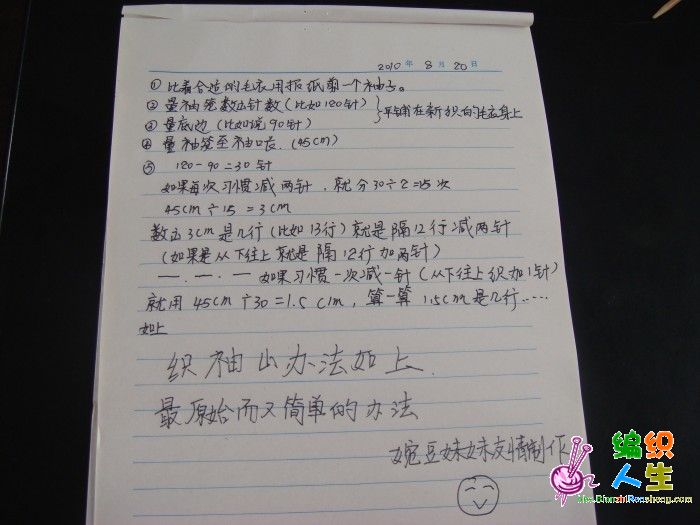 2010 年 8 月 20 日
① 比着合适的毛衣用报纸剪一个袖子。
② 量袖宠数出针数(比如120针)
③ 量底边(比如说90针)
平铺在新织的毛衣身上
④ 量袖笼至袖口长.(45cm)
⑤ 120-90=30针
如果每次习惯减两针,就分30÷2=15次
45cm÷15=3cm
数出3cm是几行(比如13行)就是隔12行减两针
(如果是从下往上就是隔12行加两针)
一.一.一 如果习惯一次减一针(从下往上织加1针)
就用45cm÷30=1.5cm,算一算1.5cm是几行……
如上
织袖山办法如上.
最原始而又简单的办法
婉豆妹妹友情制作
编织
人生